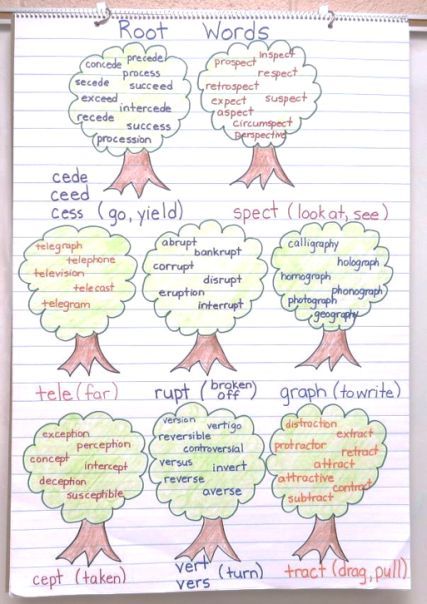 Root Words
concede precede
process
secede succeed
exceed
intercede
recede
success
procession
cede
ceed
cess (go, yield)
prospect inspect
respect
retrospect
expect suspect
aspect
circumspect
perspective
spect (look at, see)
telegraph
telephone
television
telecast
telegram
tele (far)
abrupt
bankrupt
corrupt
disrupt
eruption
interrupt
rupt (broken off)
calligraphy
holograph
homograph
phonograph
photograph
geography
graph (to write)
exception
perception
concept
intercept
deception
susceptible
cept (taken)
version vertigo
reversible
controversial
versus invert
reverse
averse
vert
vers (turn)
distraction
extract
protractor
retract
attract
attractive
contract
subtract
tract (drag, pull)